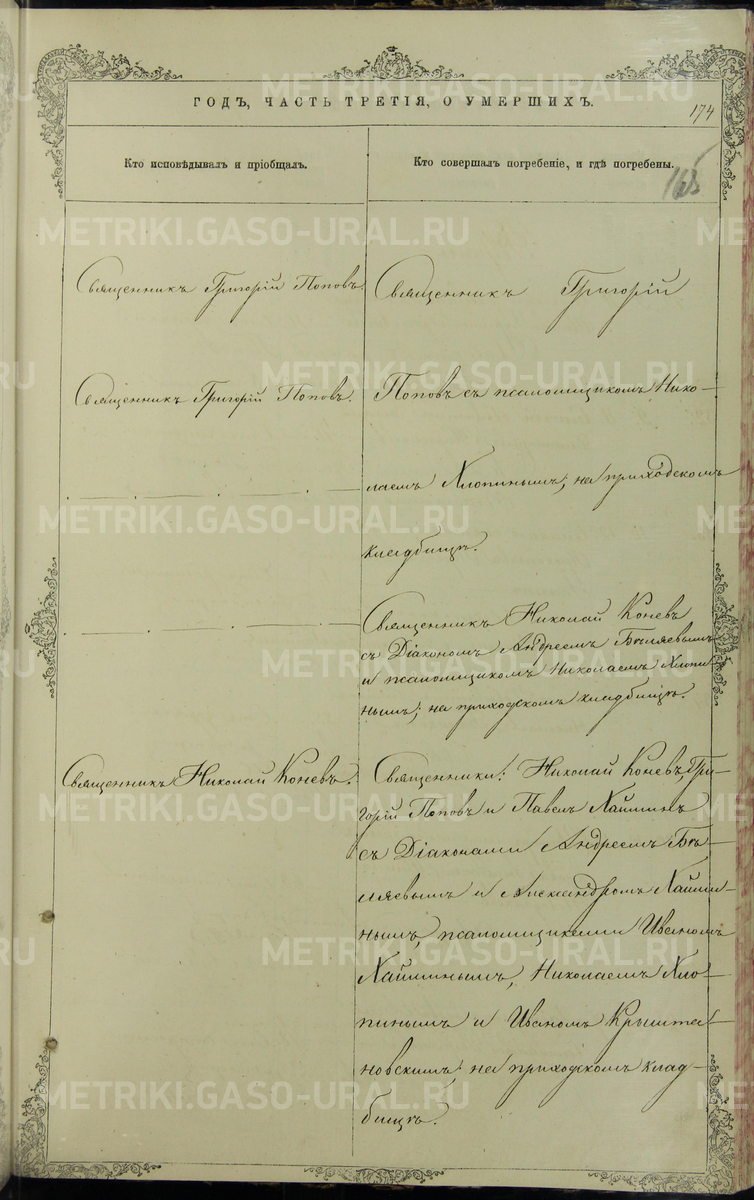 ГОДЪ, ЧАСТЬ ТРЕТІЯ, О УМЕРШИХЪ.
174
Кто исповѣдывалъ и пріобщалъ.
Кто совершалъ погребеніе, и гдѣ погребены.
Священникъ Григорій Поповъ.
Священникъ Григорій Поповъ.
Священникъ Николай Коневъ.
Священникъ Григорій
Поповъ съ псаломщикомъ Нико-
лаемъ Хлопинымъ; на приходскомъ
кладбищѣ.
Священникъ Николай Коневъ
съ Діакономъ Андреемъ Бѣляевымъ
и псаломщикомъ Николаемъ Хлопи-
нымъ; на приходскомъ кладбищѣ.
Священники: Николай Коневъ, Гри-
горій Поповъ и Павелъ Хаминъ
съ Діаконами Андреемъ Бѣ-
ляевымъ и Александромъ
нымъ, псаломщиками Иваномъ
Николаемъ Хло-
пинымъ и Иваномъ
новскимъ; на приходскомъ клад-
бищѣ.
METRIKI.GASO-URAL.RU